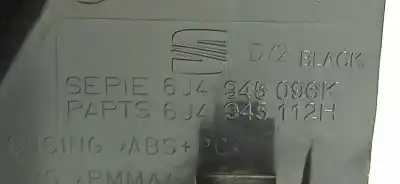 D/2 BLACK
SERIE 6J4 945 096K
PARTS 6J4 945 112H
HOUSING >ABS+PC<
>PMMA<